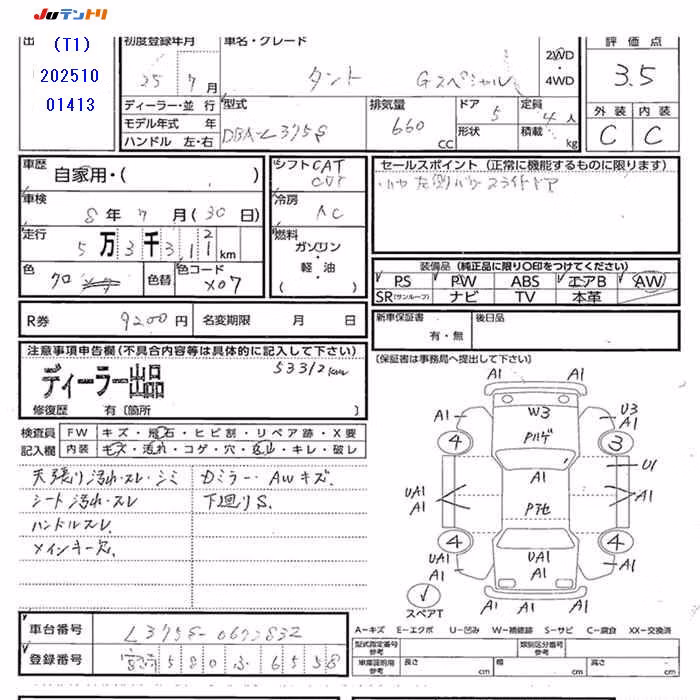 JUテントリ
出
(T1)
202510
01413
初度登録年月
25年7月
車名・グレード
タント Gスペシャル
2WD
・
4WD
評価点
3.5
外装 内装
C C
ディーラー・並行
モデル年式 年
ハンドル 左・右
型式
DBA-L375S
排気量
660
cc
ドア
5
形状
定員
4人
積載
kg
車歴
自家用・( )
シフト CAT
冷房
AC
車検
8年7月(30日)
走行
5万3千3,1
km
燃料
ガソリン
・
軽・油
( )
色
クロ
色替
色コード
X07
セールスポイント(正常に機能するものに限ります)
装備品(純正品に限り○印をつけてください)
PS PW ABS エアB AW
SR(サンルーフ) ナビ TV 本革
R券 9200円
名変期限 月 日
新車保証書
有・無
後日品
(保証書は事務局へ提出して下さい)
注意事項申告欄(不具合内容等は具体的に記入して下さい)
53312km
ディーラー出品
修復歴 有〔箇所 〕
検査員
記入欄
FW キズ・飛石・ヒビ割・リペア跡・X要
内装 キズ・汚れ・コゲ・穴・色山・キレ・破レ
天張り汚れ・スレ・シミ Dミラー・AWキズ.
シート汚れ・スレ 下廻りS.
ハンドルスレ.
メインキー欠.
A1 A1
W3
Pハゲ
A1
U3
A1
4
3
A1
U1
UA1
A1
A1
Pアセ
4
4
UA1
A1
UA1
A1
A1
A1 A1
スペアT
A-キズ E-エクボ U-凹み W-補修跡 S-サビ C-腐食 XX-交換済
車台番号
L375S-0672832
登録番号
580 6558
型式指定番号
参考
類別区分番号
参考
車庫証明用
参考
長さ cm
幅 cm
高さ cm